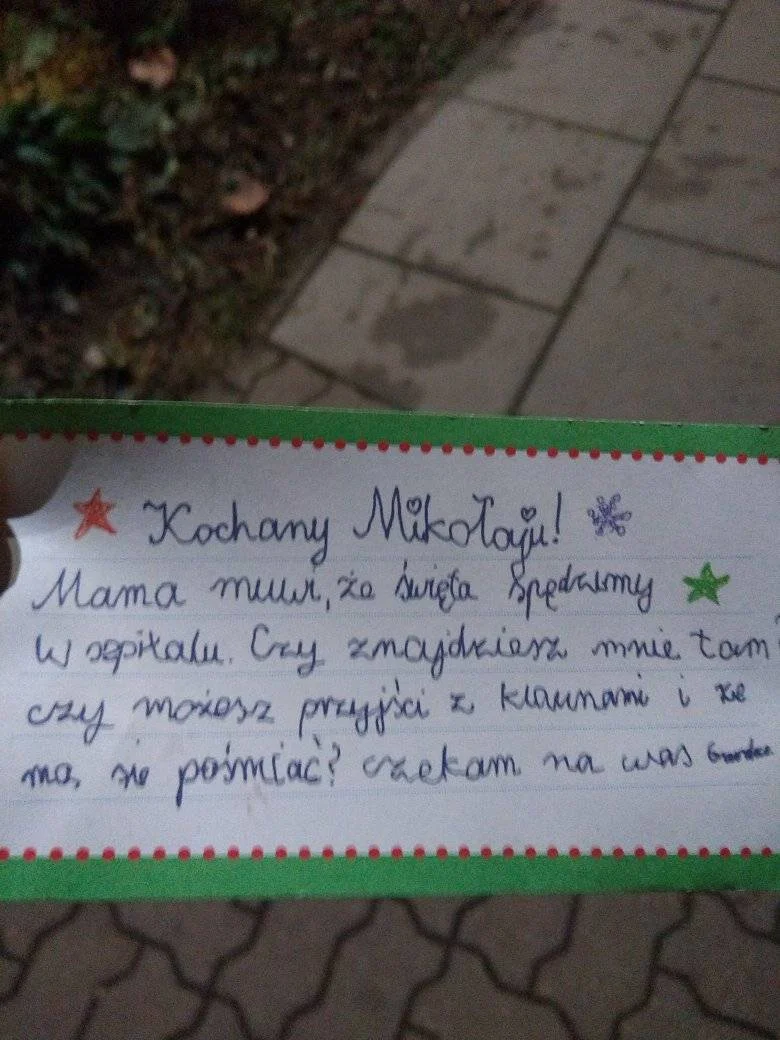 Kochany Mikołaju!
Mama muwi, że święta spędzimy
w szpitalu. Czy znajdziesz mnie tam?
czy możesz przyjści z klaunami i ze
mą, się pośmiać? czekam na was